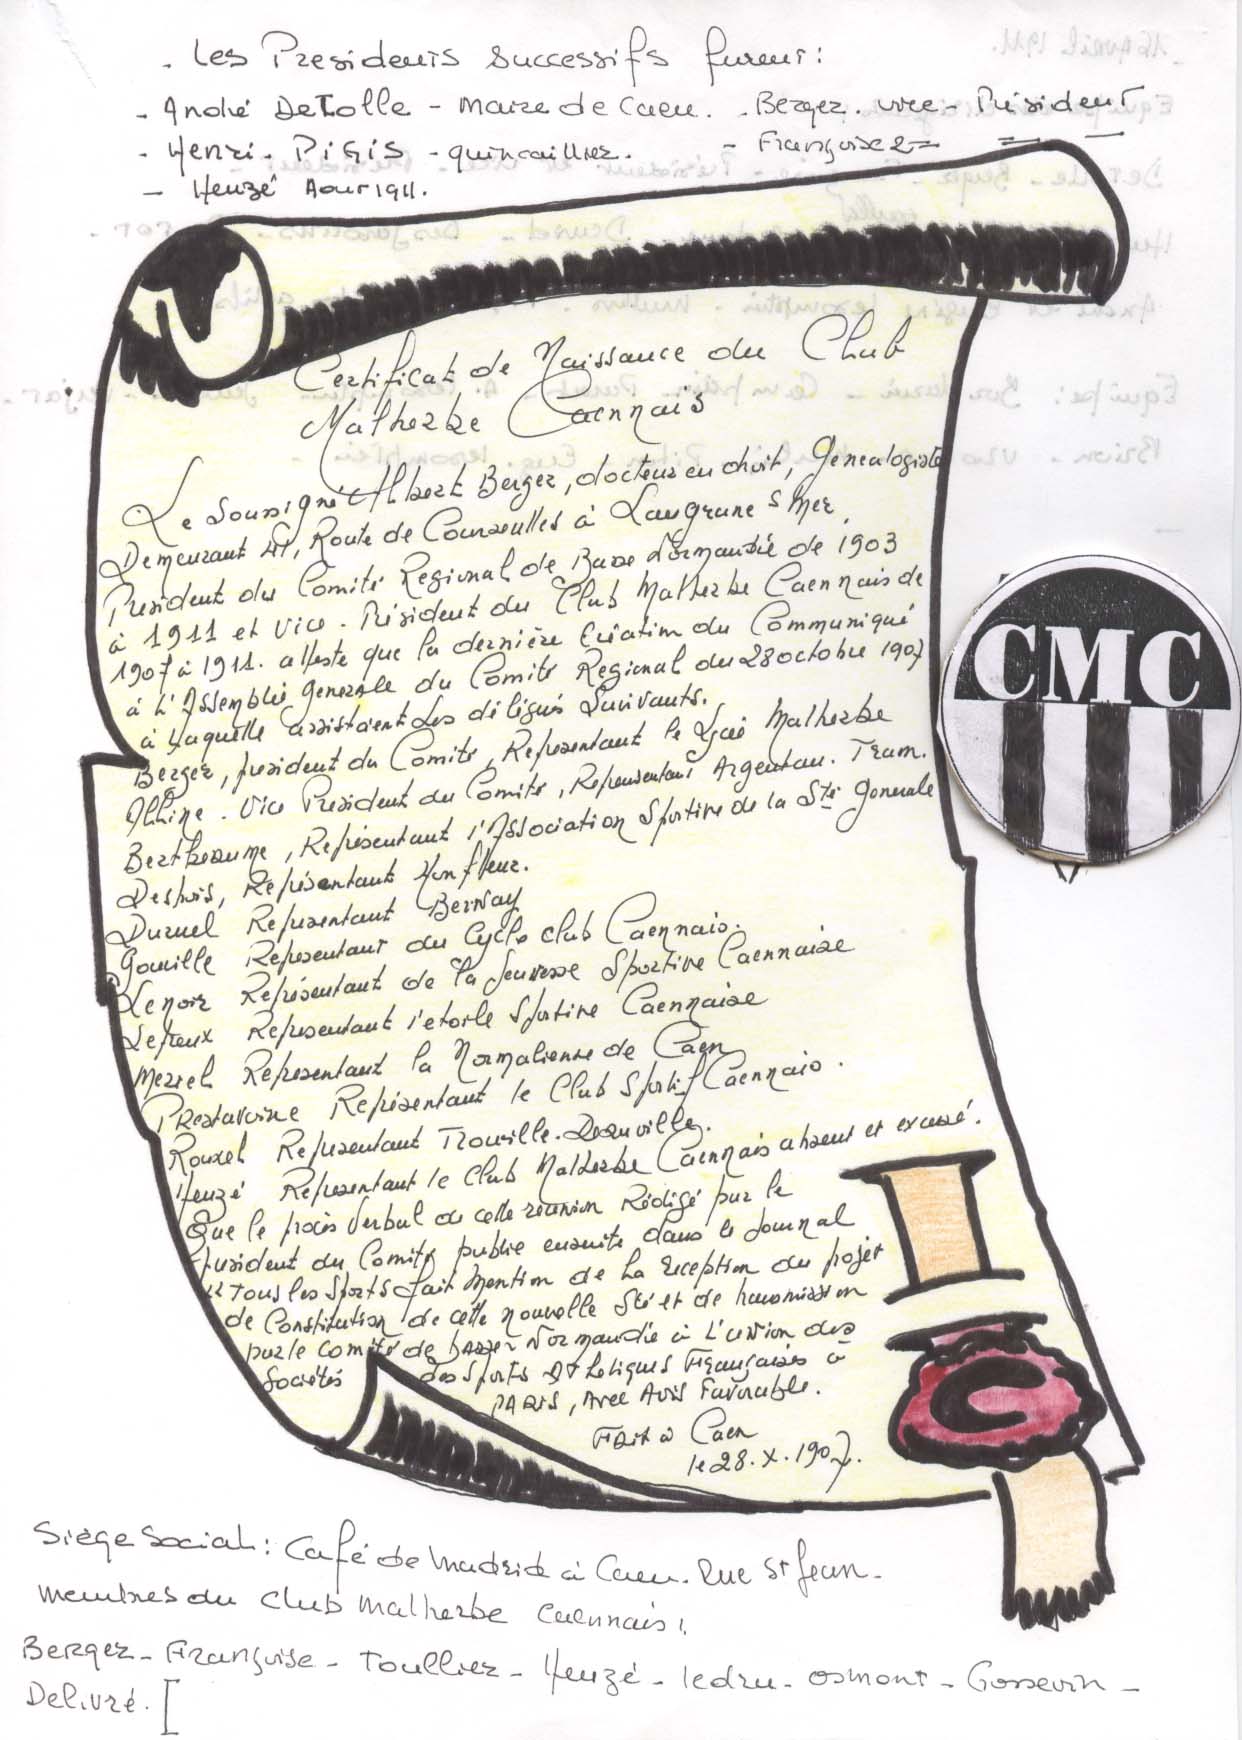 . Les Presidents successifs furent :
- André DeTolle - Maire de Caen. - Berger. vice - Président
- Henri - PIGIS - quincaillier. - Françoise 2 =  =
- Heuzé Aout 1911.
Certificat de Naissance du Club
Malherbe Caennais
Le Soussigné Albert Berger, docteur en droit, Genealogiste
Demeurant 41, Route de Courseulles à Langrune s Mer,
President du Comité Regional de Basse Normandie de 1903
à 1911 et Vice - Président du Club Malherbe Caennais de
1907 à 1911. atteste que la dernière création du Communiqué
à L'Assemblée generale du Comité Regional du 28 octobre 1907
à Laquelle assistaient Les délégués Suivants.
Berger, president du Comité, Representant le Lycée Malherbe
Vice President du Comité, Representant Argentan. Team.
Bertheaume, Représentant l'Association Sportive de la Sté Generale
Représentant Honfleur.
Duruel Representant Bernay
Gouville Representant du Cyclo club Caennais.
Lenoir Représentant de la Jeunesse Sportive Caennaise
Representant l'etoile Sportive Caennaise
Merrel Representant la Normalienne de Caen
Prestavoine Représentant le Club Sportif Caennais.
Rouxel Representant Trouville-Deauville.
Heuzé Representant le Club Malherbe Caennais absent et excusé.
Que le procès Verbal de cette réunion Rédigé par le
president du Comité publie ensuite dans le Journal
" Tous les Sports fait Mention de La reception du projet
de Constitution de cette nouvelle Sté et de transmission
par le comité de basse-Normandie à L'union des
Sociétés des Sports Athletiques Françaises à
PARIS, Avec Avis Favorable.
Fait à Caen
le 28.X.1907.
CMC
C
Siège Social : Café de Madrid à Caen. Rue St Jean.
membres du Club Malherbe Caennais :
Berger - Françoise - Toullier - Heuzé - ledru - Osmont - Gosselin -
Delivré. [